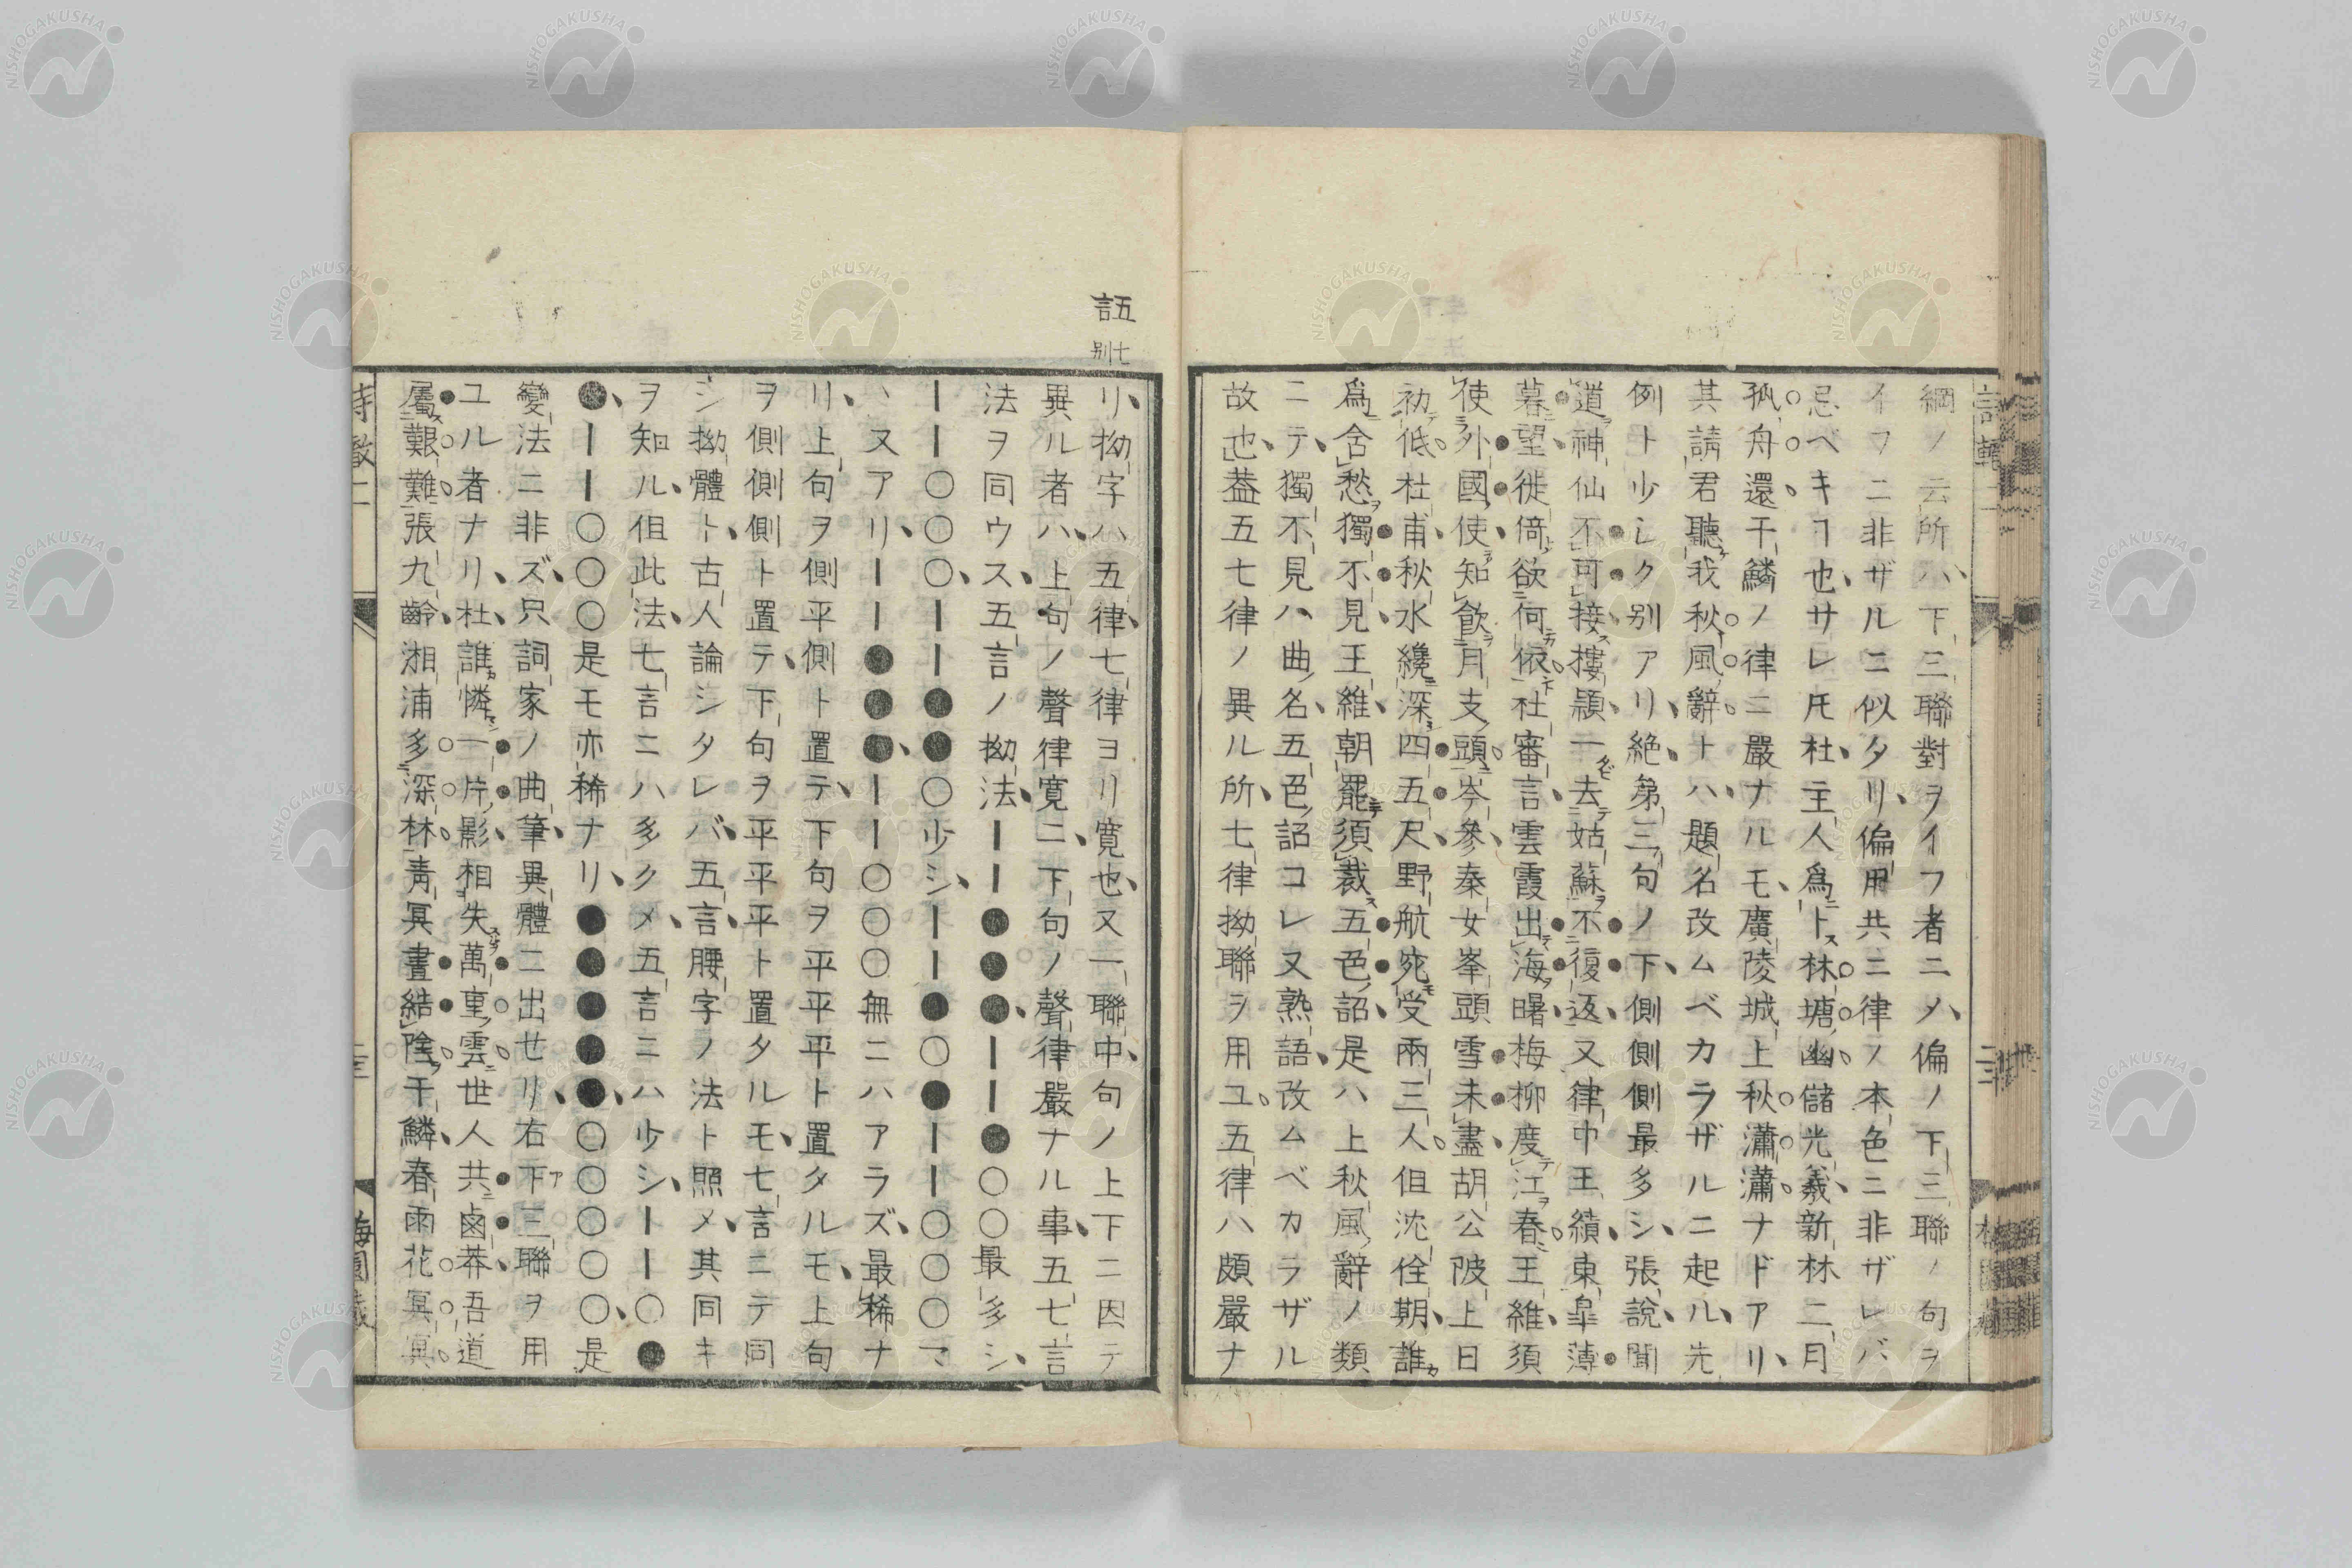 綱ノ云所ハ、下三聯對ヲイフ者ニメ、偏ノ下三聯ノ句ヲ
イフニ非ザルニ似タリ、偏用共ニ律ノ本色ニ非ザレバ
忌ベキヿ也、サレ𪜈杜、主人爲卜林塘幽、儲光羲、新林二月
孤舟還、干鱗ノ律ニ嚴ナルモ、廣陵城上秋瀟瀟ナドアリ、
其請君聽我秋風辭トハ、題名改ムベカラザルニ起ル、先
例ト少シク別アリ、絶、第三句ノ下、側側側最多シ、張說、聞
道神仙不可接、摟頴、一去姑蘇不復返、又律中王績、東皐薄
暮望、徙倚欲何依、杜審言、雲霞出海曙、梅柳度江春、王維、須
使外國使、知飲月支頭、岑參、秦女峯頭雪未盡、胡公陂上日
初低、杜甫、秋水纔深四五尺、野航宛受兩三人、但沈佺期、誰
爲含愁獨不見、王維、朝罷須裁五色詔、是ハ上秋風辭ノ類
ニテ、獨不見ハ曲名、五色詔コレ又熟語、改ムベカラザル
故也、葢五七律ノ異ル所、七律拗聯ヲ用ユ。五律ハ頗嚴ナ
語五
七別
リ、拗字ハ五律、七律ヨリ寛也、又一聯中、句ノ上下ニ因テ
異ル者ハ、上句ノ聲律寛ニ、下句ノ聲律嚴ナル事、五七言
法ヲ同ウス、五言ノ拗法、ーー●●●、ーー●〇〇最多シ、
ーー〇〇〇、ーー●●〇少シ、ーー●〇●ーー〇〇〇マ
ヽ又アリ、ーー●●●、ーー〇〇〇無ニハアラズ、最稀ナ
リ、上句ヲ側平側ト置テ、下句ヲ平平平ト置タルモ、上句
ヲ側側側ト置テ、下句ヲ平平平ト置タルモ、七言ニテ同
シ拗體ト、古人論シタレバ、五言、腰字ノ法ト照メ、其同キ
ヲ知ル、但此法、七言ニハ多クメ、五言ニハ少シ、ーー〇●
●、ーー〇〇〇是モ亦稀ナリ、●●●●●、〇〇〇〇〇、是
變法ニ非ズ、只詞家ノ曲筆、異體ニ出セリ、右下三聯ヲ用
ユル者ナリ、杜、誰憐一片影、相失萬重雲、世人共鹵莽、吾道
屬艱難、張九齡、湘浦多深林、靑冥晝結陰、干鱗、春雨花冥冥